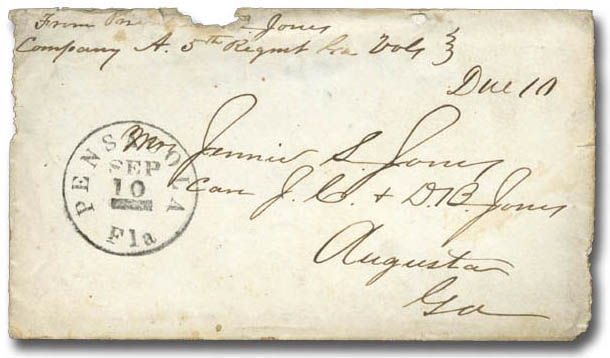 From Jones
Company A. 5th Regmt Ga Vols
Due 10
PENSACOLA
SEP
10
Fla
Mrs Jennie S. Jones
Care J. C. & D. B. Jones
Augusta
Ga